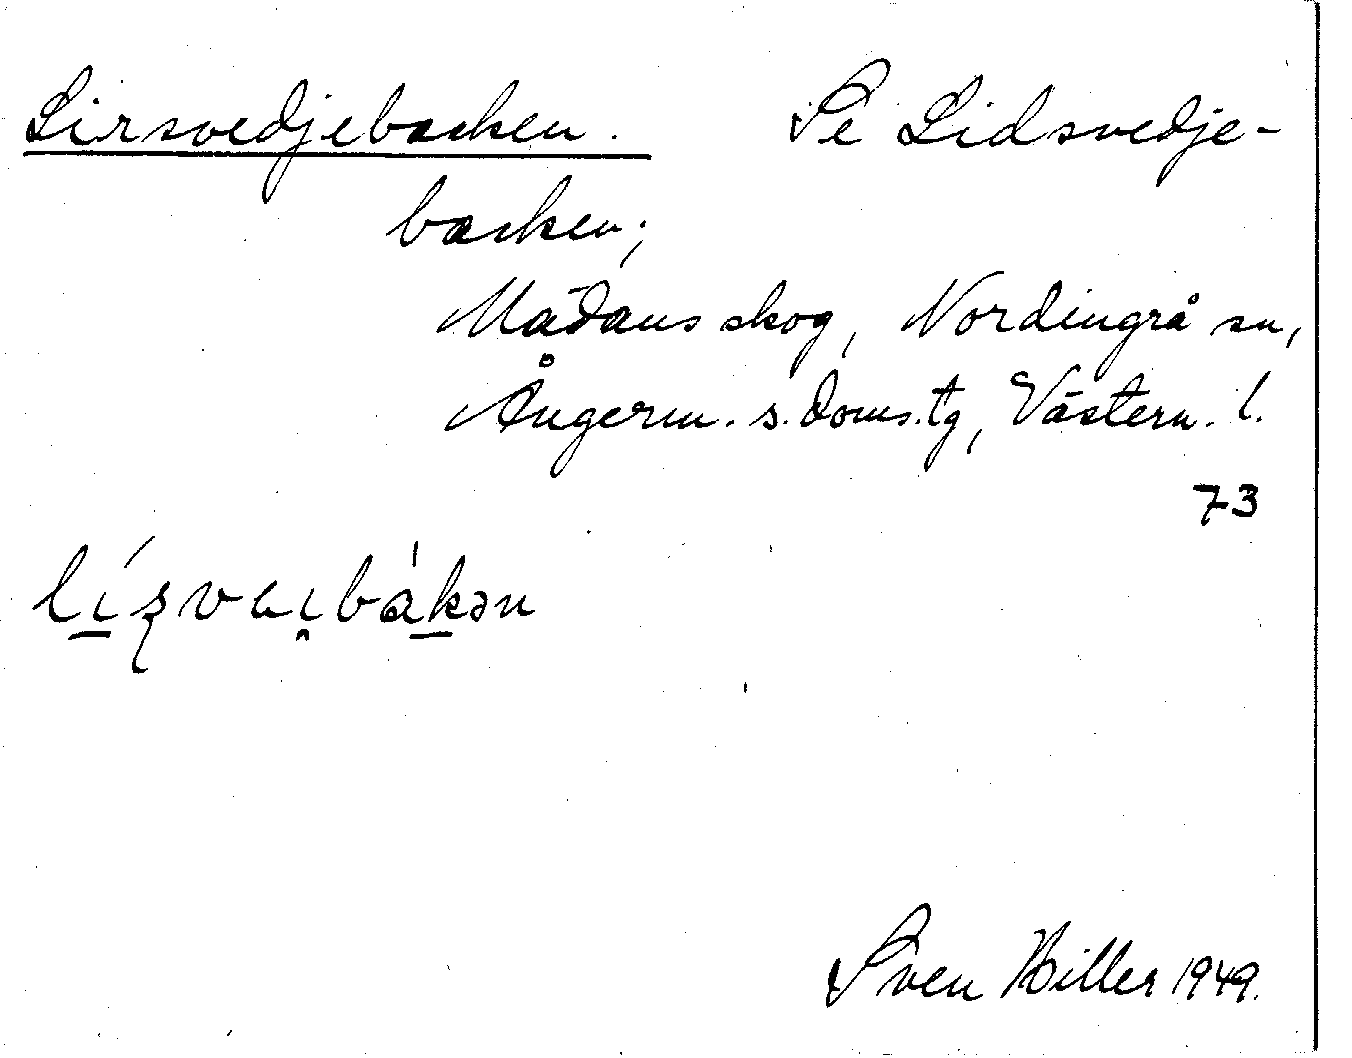 Lirsvedjebacken. Se Lidsvedje-
backen;
Mädans skog, Nordingrå sn,
Ångerm. s. doms.tg, Västern. l.
73
lísvaibákən
Sven Hiller 1949.